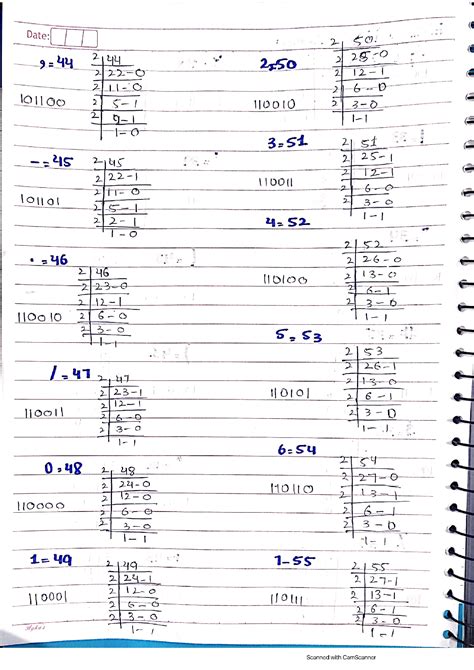 Date:
, = 44
2 | 44
2 | 22-0
101100
2 | 11-0
2 | 5-1
2 | 2-1
1-0
- = 45
2 | 45
2 | 22-1
101101
2 | 11-0
2 | 5-1
2 | 2-1
1-0
. = 46
2 | 46
2 | 23-0
2 | 12-1
110010
2 | 6-0
2 | 3-0
1-1
/ = 47
2 | 47
2 | 23-1
110011
2 | 12-1
2 | 6-0
2 | 3-0
1-1
0 = 48
2 | 48
2 | 24-0
2 | 12-0
110000
2 | 6-0
2 | 3-0
1-1
1 = 49
2 | 49
2 | 24-1
2 | 12-0
110001
2 | 6-0
2 | 3-0
1-1
2 = 50
2 | 50
2 | 25-0
2 | 12-1
2 | 6-0
110010
2 | 3-0
1-1
3 = 51
2 | 51
2 | 25-1
2 | 12-1
110011
2 | 6-0
2 | 3-0
1-1
4 = 52
2 | 52
2 | 26-0
110100
2 | 13-0
2 | 6-1
2 | 3-0
1-1
5 = 53
2 | 53
2 | 26-1
2 | 13-0
110101
2 | 6-1
2 | 3-0
1-1
6 = 54
2 | 54
2 | 27-0
110110
2 | 13-1
2 | 6-1
2 | 3-0
1-1
7-55
2 | 55
2 | 27-1
2 | 13-1
110111
2 | 6-1
2 | 3-0
1-1
Scanned with CamScanner